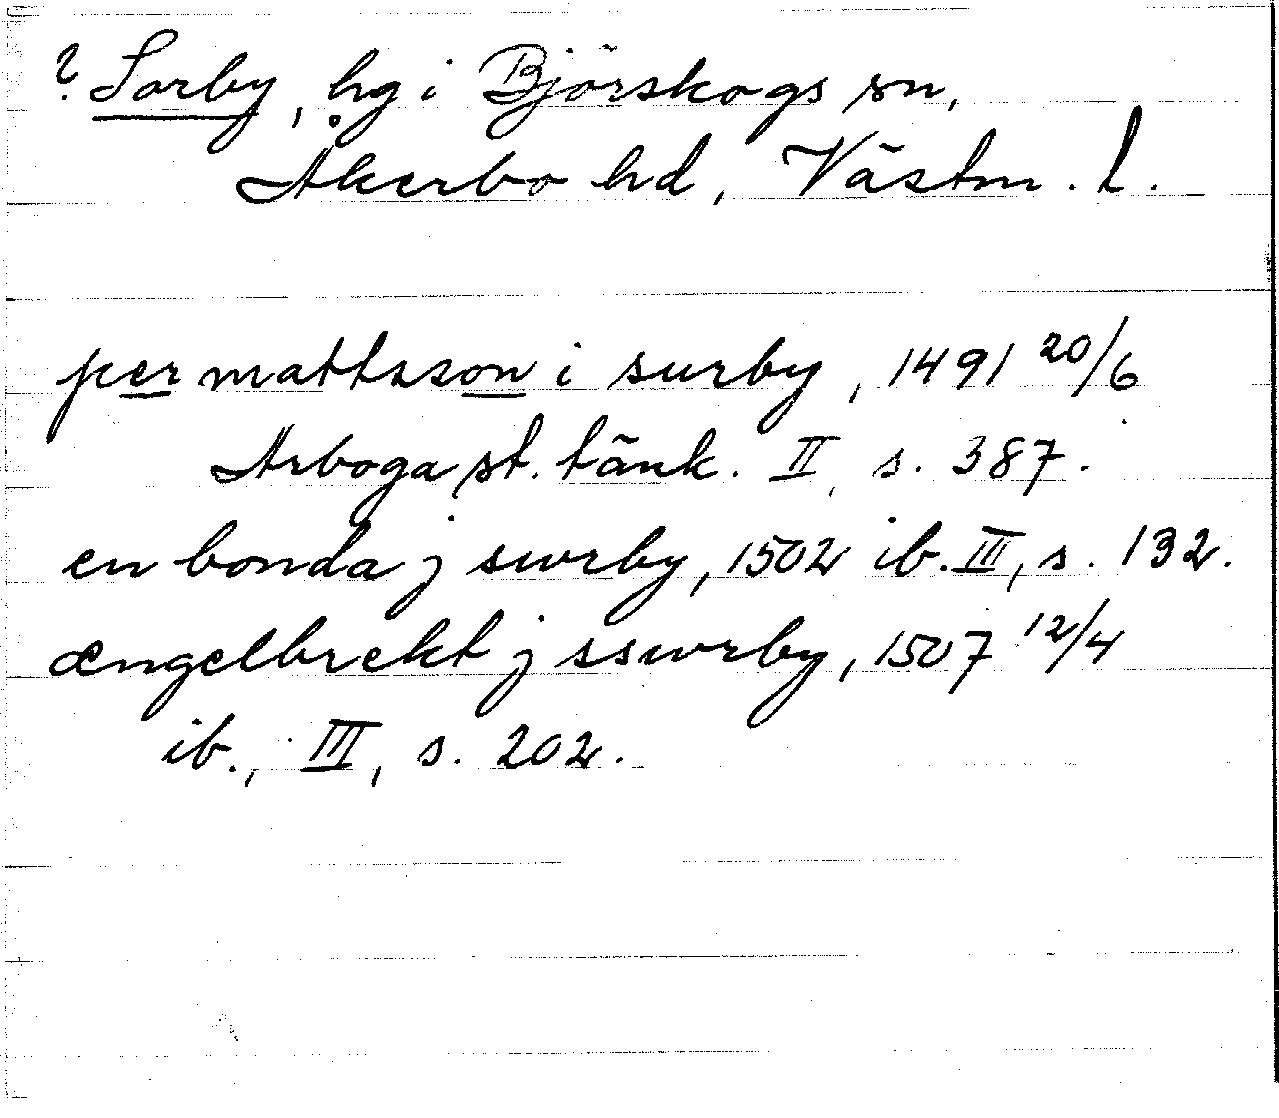 ? Sorby, hg i Björskogs sn,
Åkerbo hd, Västm. l.
per mattsson i surby, 1491 20/6
Arboga st. tänk. II, s. 387.
en bonda j swrby, 1502 ib. III, s. 132.
ængelbrekt j sswrby, 1507 12/4
ib., III, s. 202.